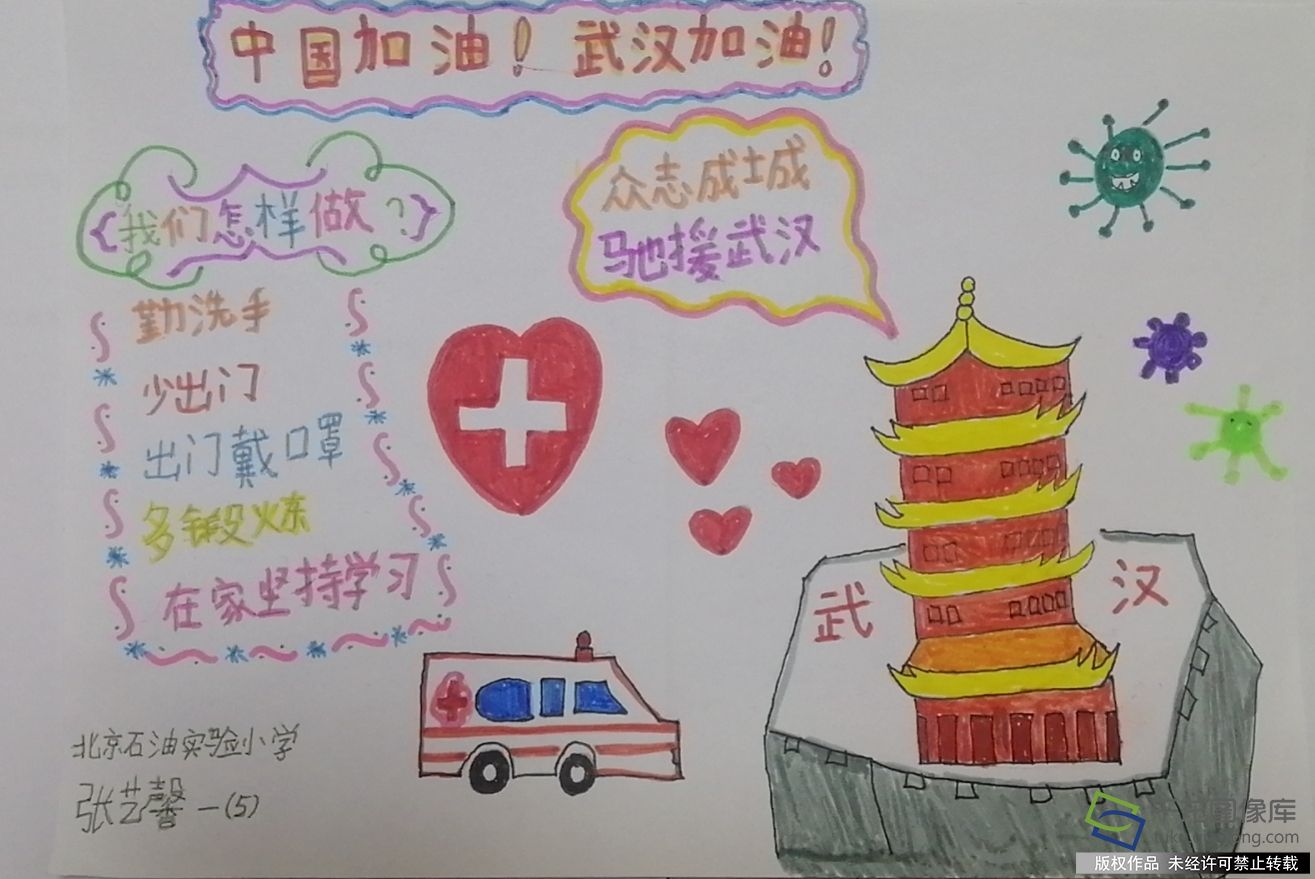 中国加油！武汉加油！
我们怎样做？
勤洗手
少出门
出门戴口罩
多锻炼
在家坚持学习
众志成城
驰援武汉
武 汉
北京石油实验小学
张艺馨 一(5)
图像库
版权作品 未经许可禁止转载